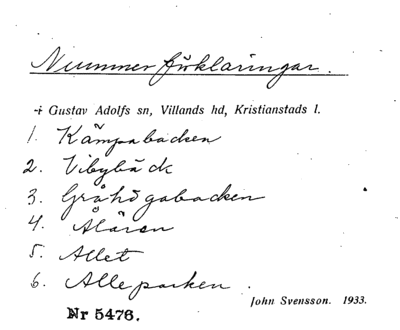 Nummerförklaringar.
i Gustav Adolfs sn, Villands hd, Kristianstads l.
1. Kämpabacken
2. Vibybäck
3. Gråhögabacken
4.
5. Allet
6. Alleparken.
John Svensson. 1933.
Nr 5476.